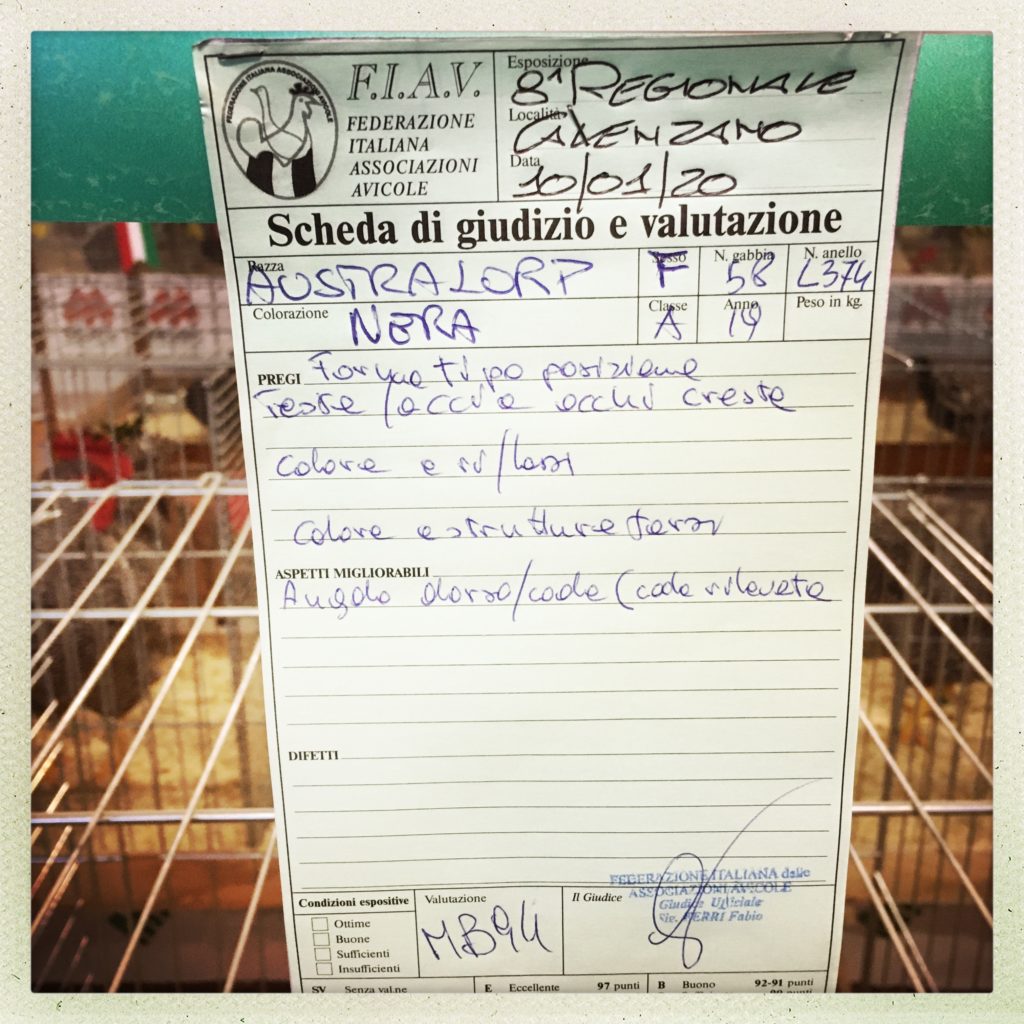 FEDERAZIONE ITALIANA ASSOCIAZIONI AVICOLE
F.I.A.V.
FEDERAZIONE
ITALIANA
ASSOCIAZIONI
AVICOLE
Esposizione
8ª REGIONALE
Località
CALENZANO
Data
10/01/20
Scheda di giudizio e valutazione
Razza Sesso N. gabbia N. anello
AUSTRALORP F 58 L374
Colorazione Classe Anno Peso in kg.
NERA A 19
PREGI Forma tipo posizione
Testa faccia occhi cresta
colore e riflessi
Colore e struttura tarsi
ASPETTI MIGLIORABILI
Angolo dorso/coda (coda rilevata
DIFETTI
Condizioni espositive
Ottime
Buone
Sufficienti
Insufficienti
Valutazione
MB94
Il Giudice
FEDERAZIONE ITALIANA delle
ASSOCIAZIONI AVICOLE
Giudice Ufficiale
FERRI Fabio
SV Senza val.ne E Eccellente 97 punti B Buono 92-91 punti